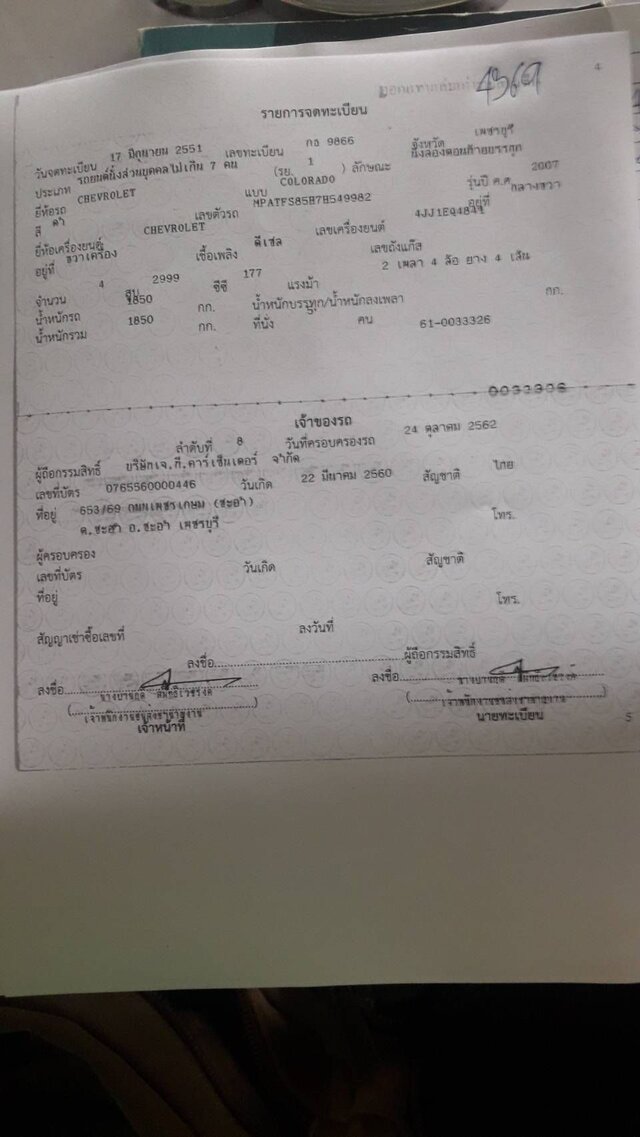 4369
4
รายการจดทะเบียน
วันจดทะเบียน 17 มิถุนายน 2551 เลขทะเบียน กง 9866 จังหวัด เพชรบุรี
ประเภท รถยนต์นั่งส่วนบุคคลไม่เกิน 7 คน (รย. 1 ) ลักษณะ นั่งสองตอนท้ายบรรทุก
ยี่ห้อรถ CHEVROLET แบบ COLORADO รุ่นปี ค.ศ 2007
สี ดำ เลขตัวรถ MPATFS85H7H549982 อยู่ที่ กลางขวา
ยี่ห้อเครื่องยนต์ CHEVROLET เลขเครื่องยนต์
อยู่ที่ ขวาเครื่อง เชื้อเพลิง ดีเซล เลขถังแก๊ส
จำนวน 4 สูบ 2999 ซีซี 177 แรงม้า 2 เพลา 4 ล้อ ยาง 4 เส้น
น้ำหนักรถ 1850 กก. น้ำหนักบรรทุก/น้ำหนักลงเพลา กก.
น้ำหนักรวม 1850 กก. ที่นั่ง 5 คน 61-0033326
0033326
เจ้าของรถ
ลำดับที่ 8 วันที่ครอบครองรถ 24 ตุลาคม 2562
ผู้ถือกรรมสิทธิ์ บริษัทเจ.ที.คาร์เซ็นเตอร์ จำกัด
เลขที่บัตร 0765560000446 วันเกิด 22 มีนาคม 2560 สัญชาติ ไทย
ที่อยู่ 653/69 ถนนเพชรเกษม (ชะอำ)
ต.ชะอำ อ.ชะอำ เพชรบุรี โทร.
ผู้ครอบครอง
เลขที่บัตร วันเกิด สัญชาติ
ที่อยู่ โทร.
สัญญาเช่าซื้อเลขที่ ลงวันที่
ลงชื่อ ผู้ถือกรรมสิทธิ์
ลงชื่อ ลงชื่อ
(เจ้าพนักงานขนส่งชำนาญงาน) (เจ้าพนักงานขนส่งชำนาญงาน)
เจ้าหน้าที่ นายทะเบียน
5